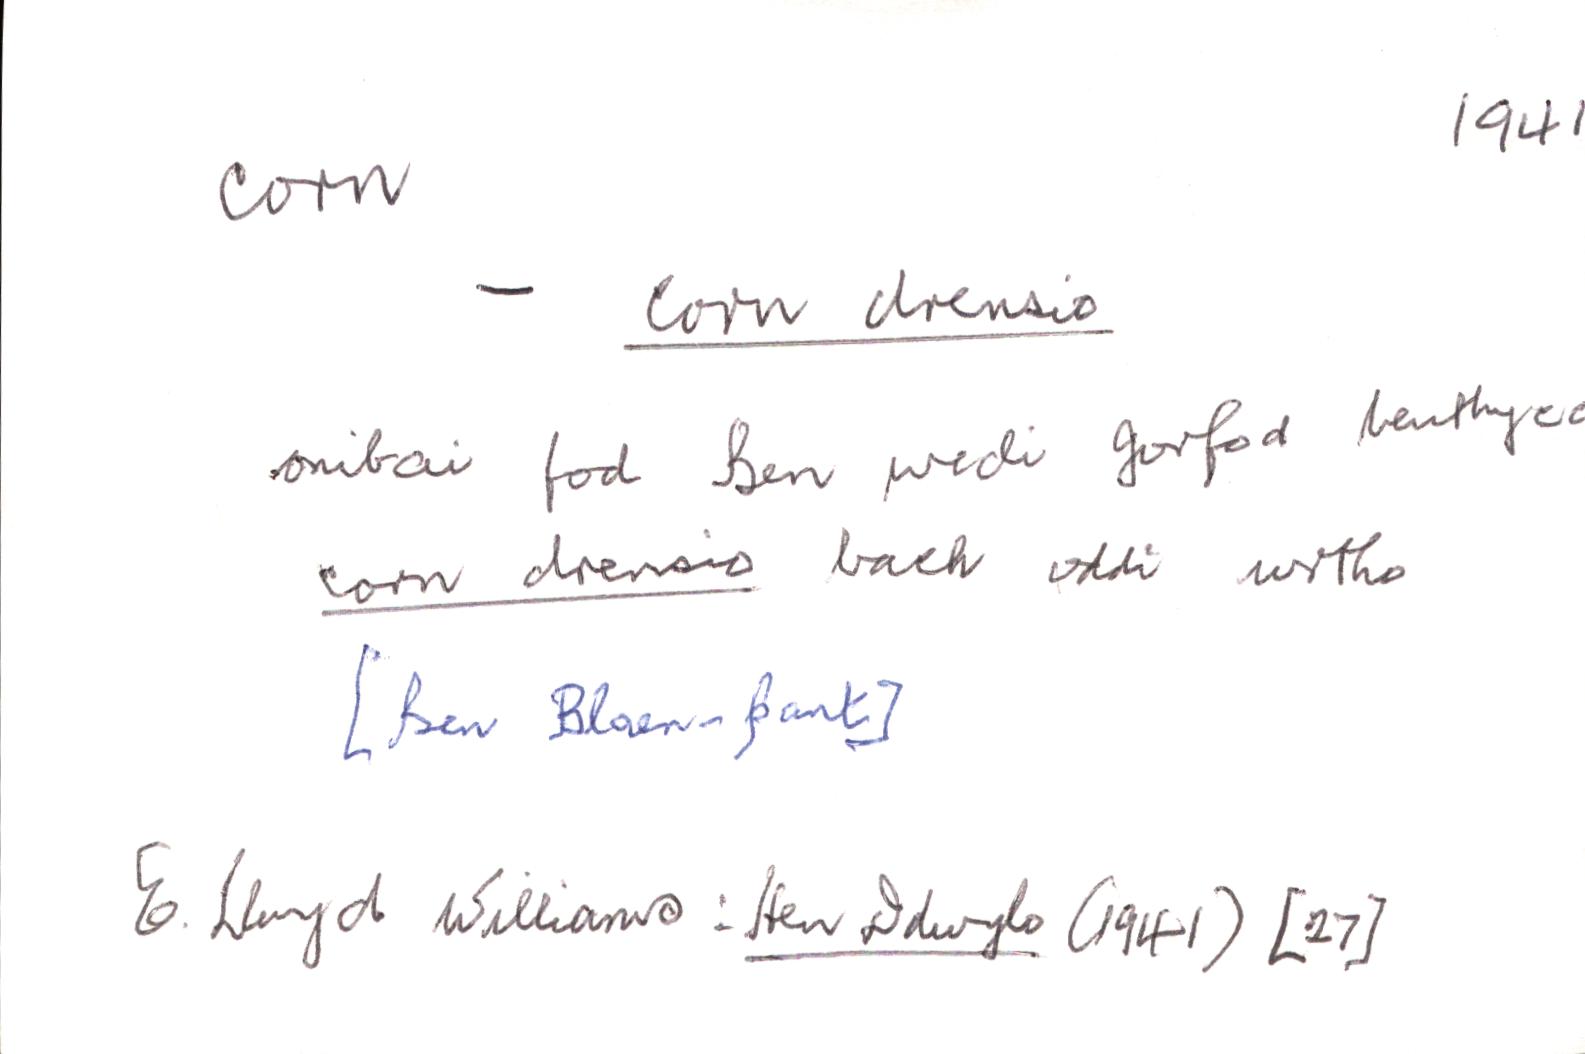 1941
corn
- corn drensio
onibai fod Ben wedi gorfod benthyca
corn drensio bach oddi wrtho
[Ben Blaen-pant]
E. Llwyd Williams : Hen Ddwylo (1941) [27]